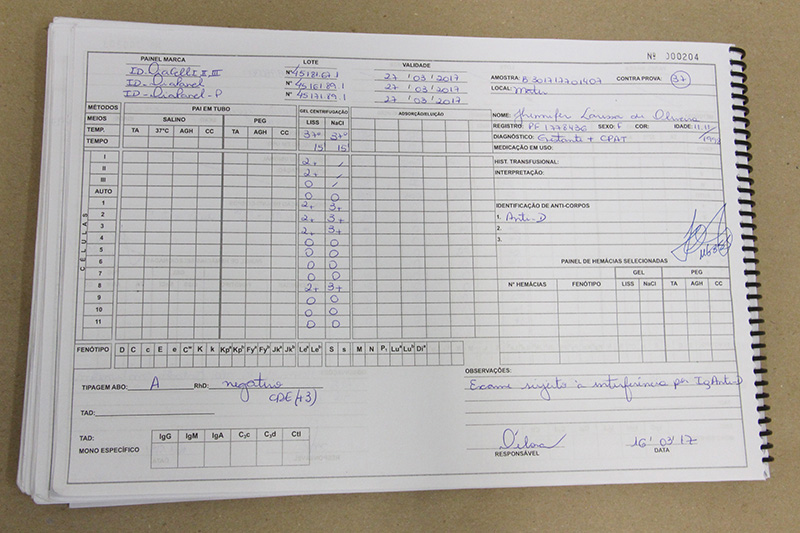 Nº 000204
PAINEL MARCA LOTE VALIDADE
ID-DiaCell I, II, III Nº 45184.67.1 27 / 03 / 2017
ID- Diapanel Nº 45161.89.1 27 / 03 / 2017
ID- Diapanel-P Nº 45171.89.1 27 / 03 / 2017
AMOSTRA: B301717701407 CONTRA PROVA: 37
LOCAL:
MÉTODOS PAI EM TUBO GEL CENTRIFUGAÇÃO ADSORÇÃO/ELUIÇÃO
MEIOS SALINO PEG LISS NaCl
TEMP. TA 37ºC AGH CC TA PEG AGH CC 37º 37º
TEMPO 15' 15'
NOME: Larissa de Oliveira
REGISTRO: PF 1778436 SEXO: F COR: IDADE: 11.11/
DIAGNÓSTICO: Gestante + CPAT
MEDICAÇÃO EM USO:
HIST. TRANSFUSIONAL:
INTERPRETAÇÃO:
CÉLULAS
I 2+ /
II 2+ /
III 0 /
AUTO 0 0
1 2+ 3+
2 2+ 3+
3 2+ 3+
4 0 0
5 0 0
6 0 0
7 0 0
8 2+ 3+
9 0 0
10 0 0
11 0 0
IDENTIFICAÇÃO DE ANTI-CORPOS
1. Anti-D
2.
3.
PAINEL DE HEMÁCIAS SELECIONADAS
Nº HEMÁCIAS FENÓTIPO GEL PEG
LISS NaCl TA AGH CC
FENÓTIPO D C c E e Cʷ K k Kpᵃ Kpᵇ Fyᵃ Fyᵇ Jkᵃ Jkᵇ Leᵃ Leᵇ S s M N P₁ Luᵃ Luᵇ Diᵃ
TIPAGEM ABO: A RhD: negativo
CDE(43)
TAD:
TAD:
MONO ESPECÍFICO
IgG IgM IgA C₃c C₃d Ctl
OBSERVAÇÕES:
Exame sujeito à interferência por IgAntiD
Débora 16 / 03 / 17
RESPONSÁVEL DATA